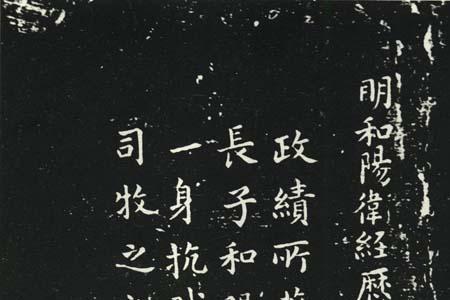 明和陽衛経歴
政績所
長子和
一身抗
司牧之